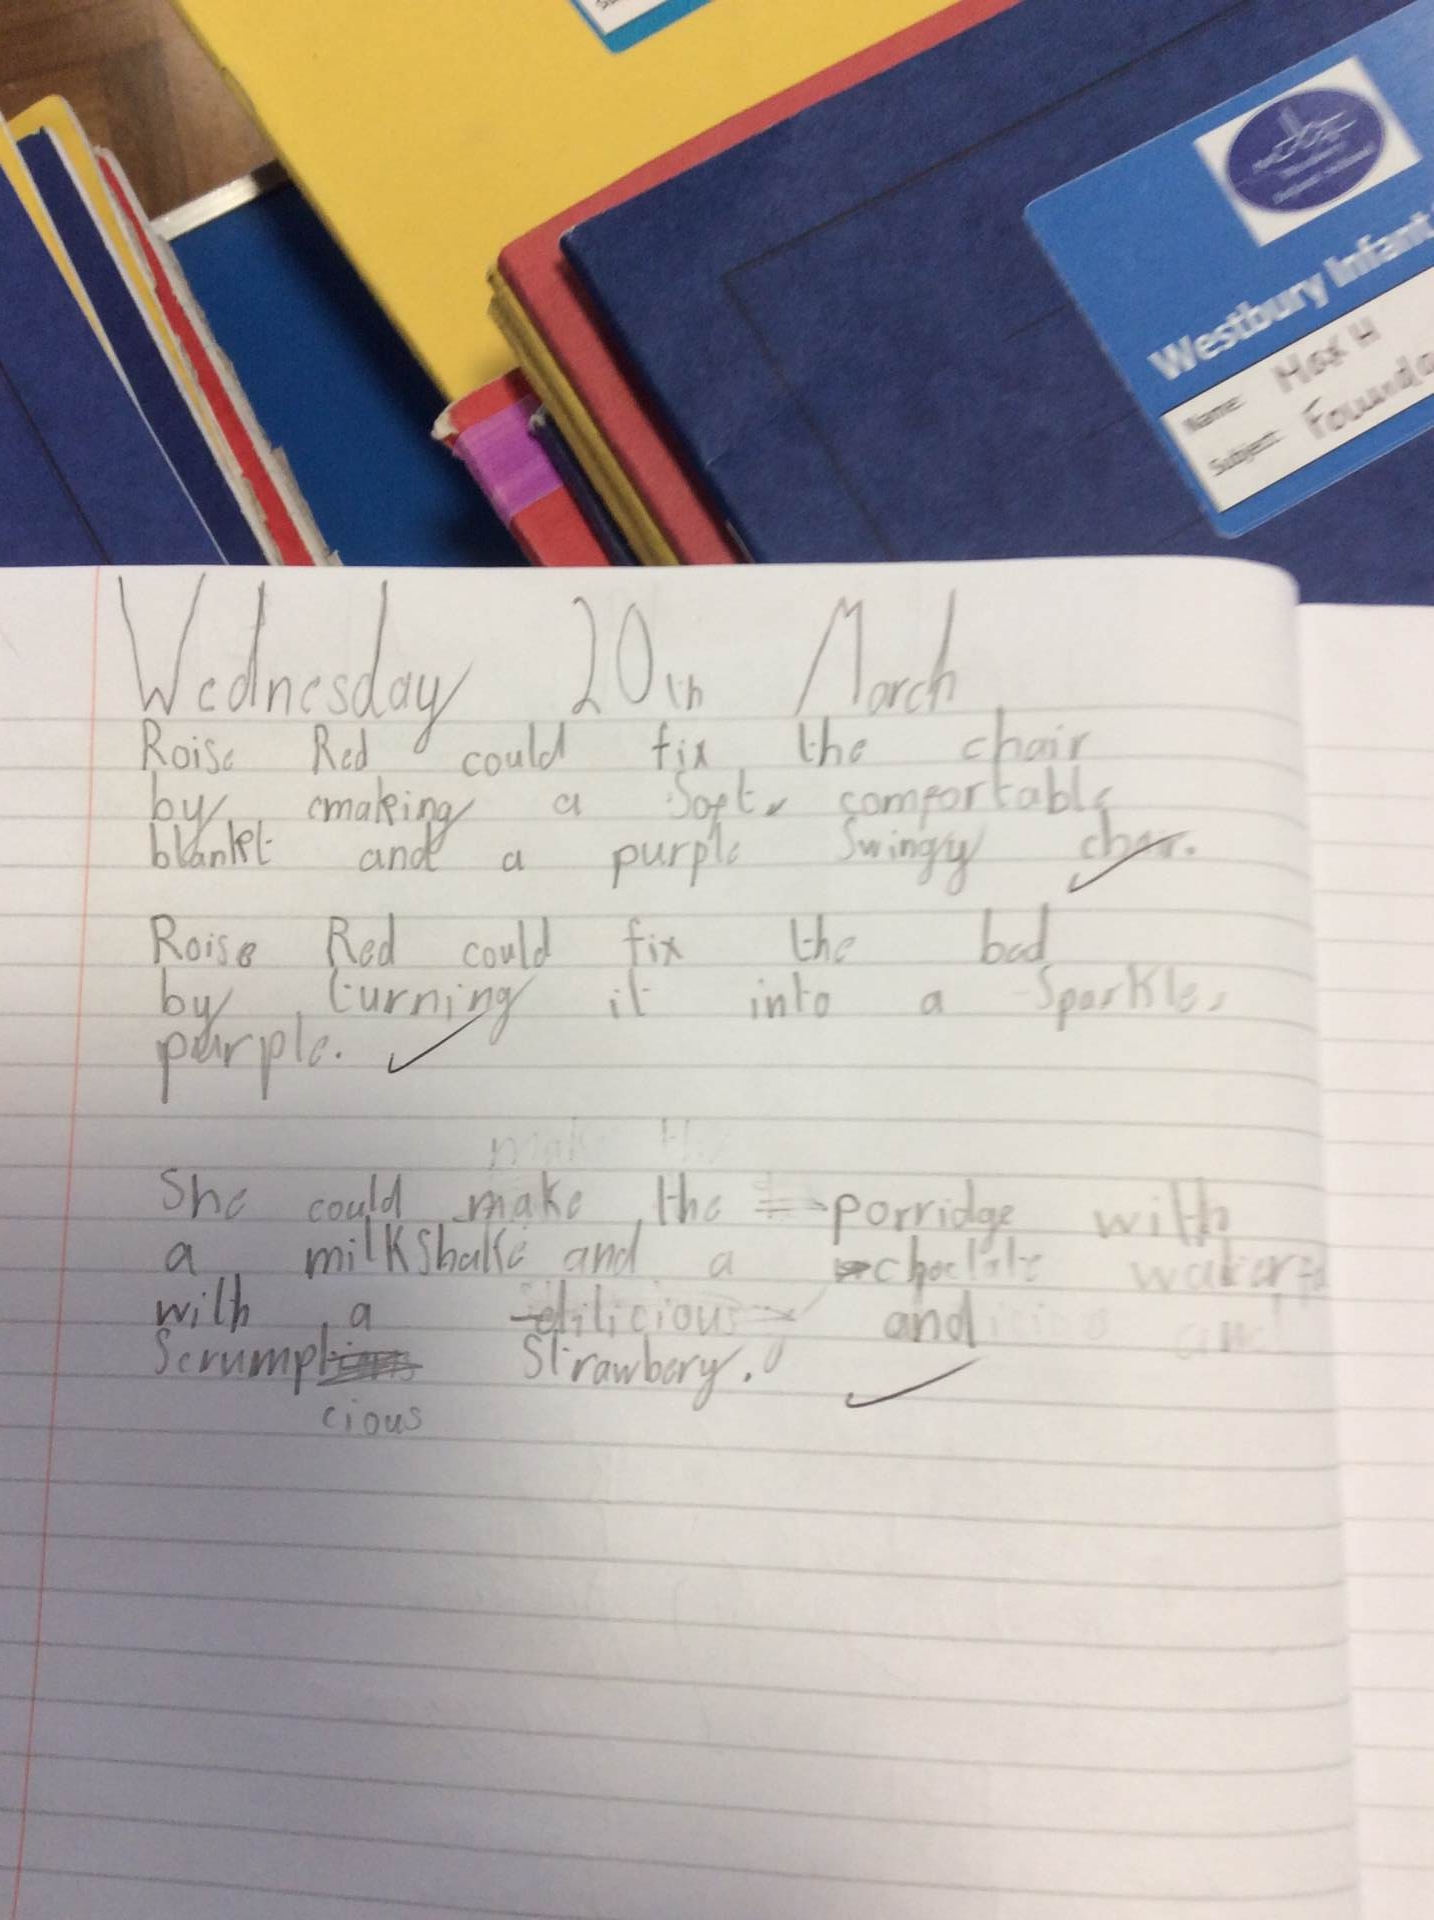 Westbury Infant
Name: Max H
Subject: Founda
Wednesday 20th March
Roise Red could fix the chair
by making a Soft, comfortable
blanket and a purple Swingy cher.
Roise Red could fix the bed
by turning it into a Sparkle,
purple.
She could make the porridge with
a milkShake and a choclate
with a dilicious and
Scrumptcious Strawbery.